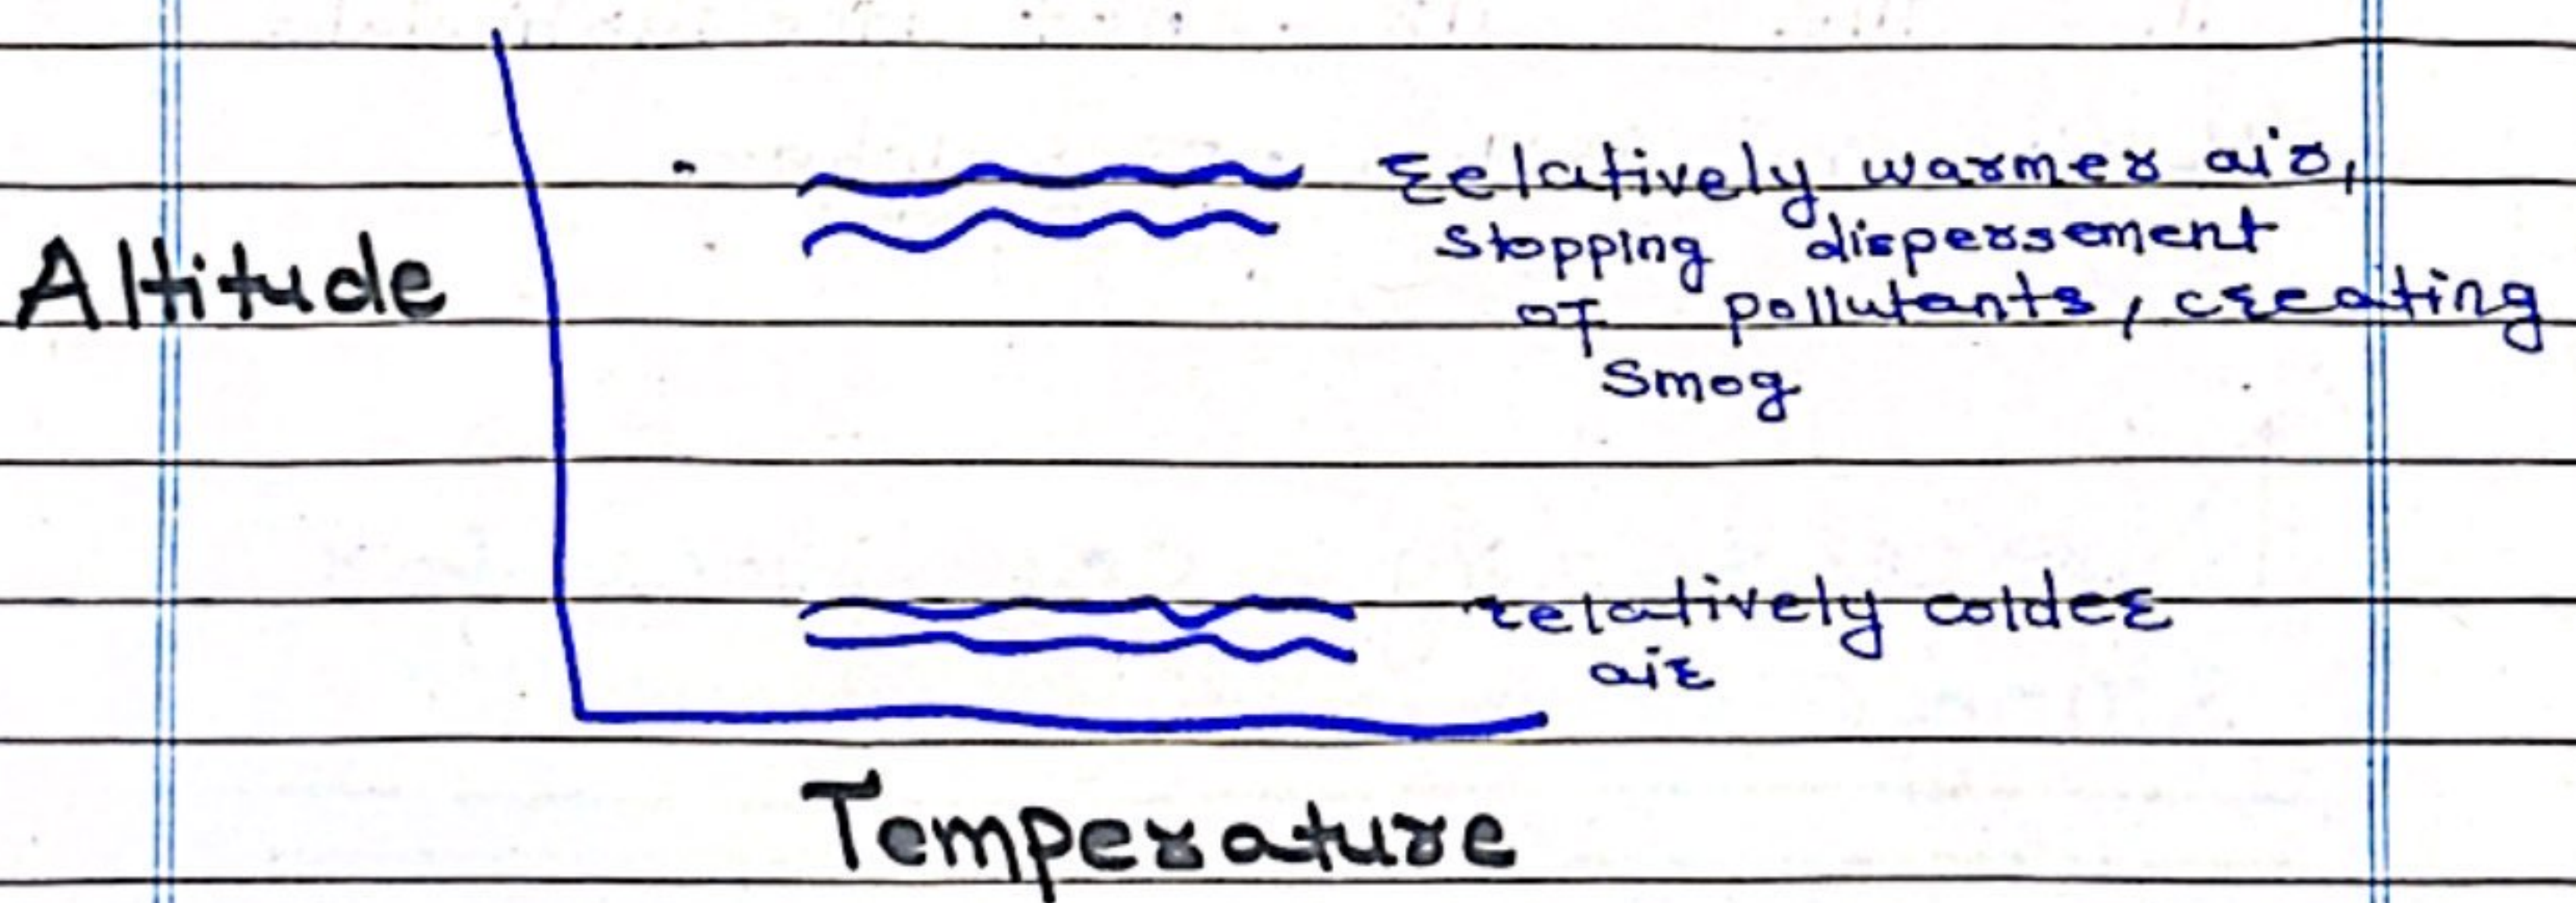 relatively warmer air,
stopping dispersement
of pollutants, creating
smog
Altitude
relatively colder
air
Temperature